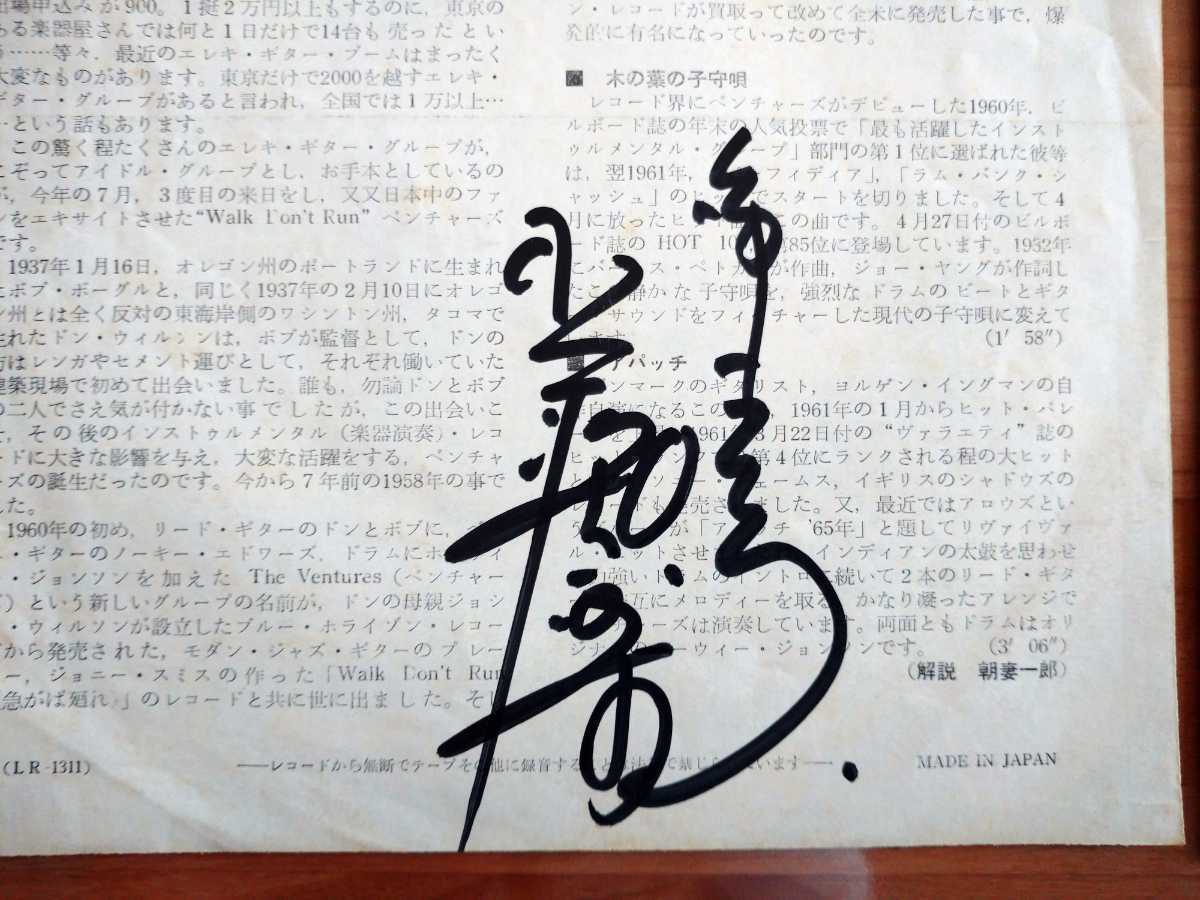 出場申込みが900。1挺2万円以上もするのに，東京の
ある楽器屋さんでは何と1日だけで14台も売ったとい
う……等々，最近のエレキ・ギター・ブームはまったく
大変なものがあります。東京だけで2000を越すエレキ・
ギター・グループがあると言われ，全国では1万以上…
…という話もあります。
この驚く程たくさんのエレキ・ギター・グループが，
こぞってアイドル・グループとし，お手本としているの
が，今年の7月，3度目の来日をし，又又日本中のファ
ンをエキサイトさせた“Walk Don't Run”ベンチャーズ
です。
1937年1月16日，オレゴン州のポートランドに生まれ
たボブ・ボーグルと，同じく1937年の2月10日にオレゴ
ン州とは全く反対の東海岸側のワシントン州，タコマで
生れたドン・ウィルソンは，ボブが監督として，ドンの
方はレンガやセメント運びとして，それぞれ働いていた
建築現場で初めて出会いました。誰も，勿論ドンとボブ
の二人でさえ気が付かない事でしたが，この出会いこ
そ，その後のインストゥルメンタル（楽器演奏）・レコ
ードに大きな影響を与え，大変な活躍をする，ベンチャ
ーズの誕生だったのです。今から7年前の1958年の事で
した。
1960年の初め，リード・ギターのドンとボブに，
・ギターのノーキー・エドワーズ，ドラムにホ
ー・ジョンソンを加えた The Ventures（ベンチャー
ズ）という新しいグループの名前が，ドンの母親ジョシ
・ウィルソンが設立したブルー・ホライゾン・レコー
ドから発売された，モダン・ジャズ・ギターのプレー
ヤー，ジョニー・スミスの作った「Walk Don't Run
急がば廻れ」のレコードと共に世に出ました。そし
(LR-1311)
ン・レコードが買取って改めて全米に発売した事で，爆
発的に有名になっていったのです。
■ 木の葉の子守唄
レコード界にベンチャーズがデビューした1960年，ビ
ルボード誌の年末の人気投票で「最も活躍したインスト
ゥルメンタル・グループ」部門の第1位に選ばれた彼等
は，翌1961年，フィディア」，「ラム・バンク・シ
ャッシュ」のヒットでスタートを切りました。そして4
月に放ったヒット この曲です。4月27日付のビルボ
ード誌の HOT 10 第85位に登場しています。1932年
にバー ス・ペトカ が作曲，ジョー・ヤングが作詞し
たこ 静かな子守唄を，強烈なドラムのビートとギタ
サウンドをフィーチャーした現代の子守唄に変えて
ます (1′58″)
■ アパッチ
ンマークのギタリスト，ヨルゲン・イングマンの自
作自演になるこの ，1961年の1月からヒット・パレ
ー を 1961年3月22日付の“ヴァラエティ”誌の
ヒッ ンク 第4位にランクされる程の大ヒット
と ソニー ェームス，イギリスのシャドウズの
レコードも発売されました。又，最近ではアロウズとい
う が「ア ッチ '65年」と題してリヴァイヴァ
ル・ ットさせ インディアンの太鼓を思わせ
力強いドラムのイントロに続いて2本のリード・ギタ
互にメロディーを取る，かなり凝ったアレンジで
ーズは演奏しています。両面ともドラムはオリ
ジナ ーウィー・ジョンソンです。 (3′06″)
（解説 朝妻一郎）
──レコードから無断でテープその他に録音すること 法 で禁じ います──
MADE IN JAPAN